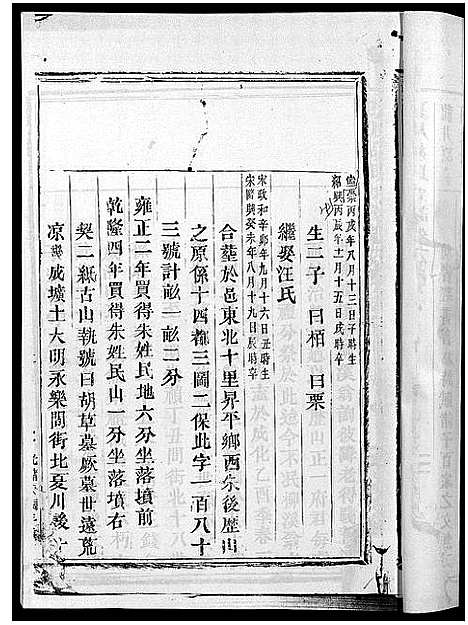 宋崇寧丙戌年八月十三日子時生
紹興丙辰年十一月十五日戌時卒
生二子 曰栢 曰栗
繼娶汪氏
宋政和辛卯年九月十六日丑時生
宋隆興癸未年八月十九日辰時卒
合葬於邑東北十里昇平鄉西朱後歷山
之原係十四都三圖二保此字一百八十
三號計畝一畝二分
雍正二年買得朱姓民地六分坐落墳前
乾隆四年買得朱姓民山一分坐落墳右
契二紙古山執號曰胡草墓厥墓世遠荒
凉幾成壙土大明永樂間街北夏川義